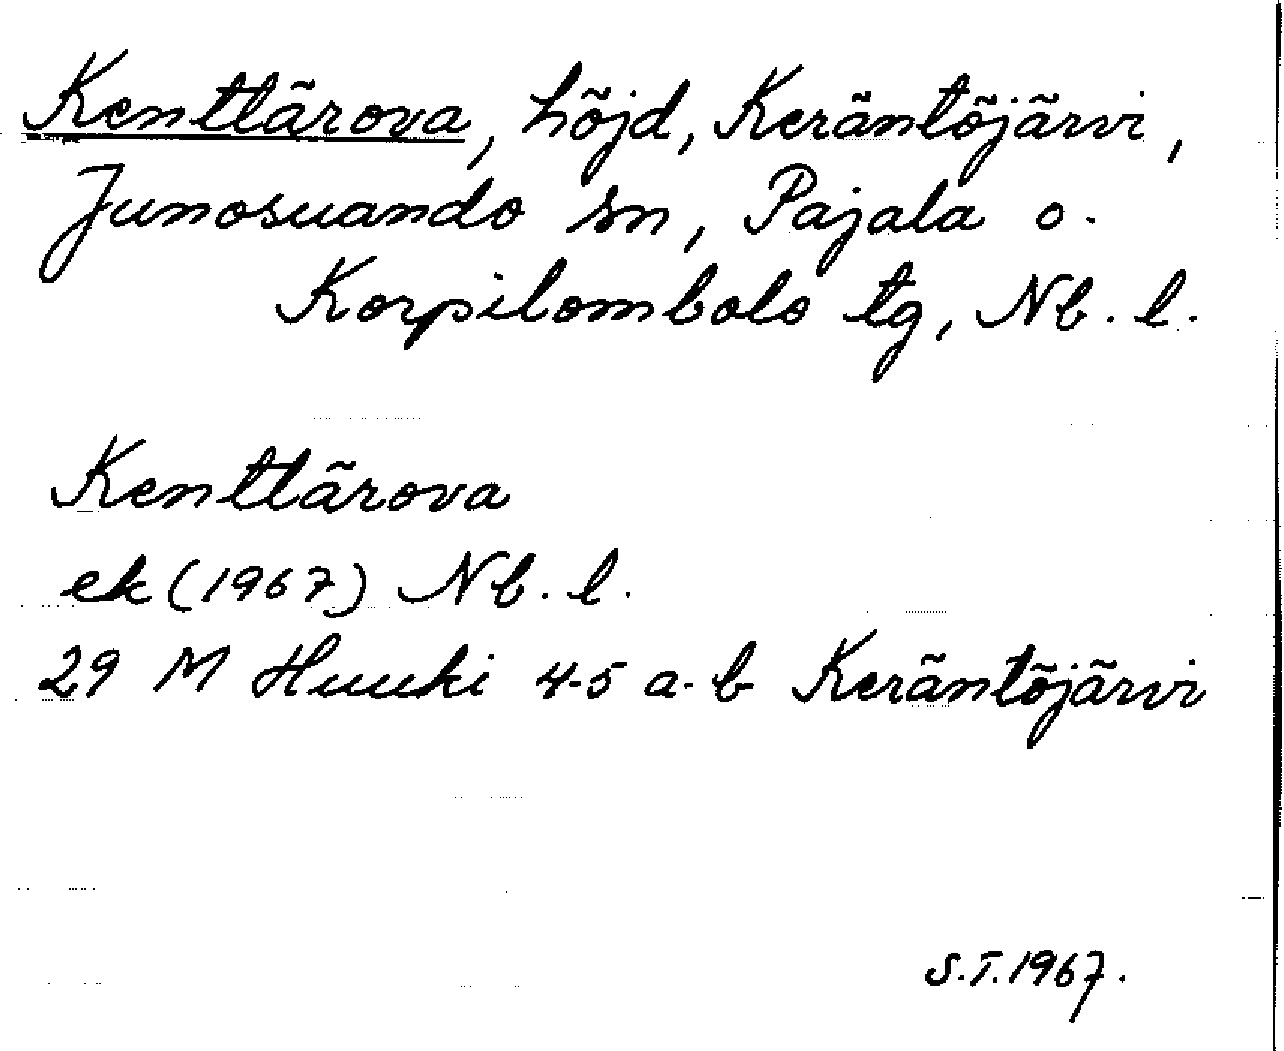 Kenttärova, höjd, Keräntöjärvi,
Junosuando sn, Pajala o.
Korpilombolo tg, Nb. l.
Kenttärova
ek (1967) Nb. l.
29 M Huuki 4-5 a-b Keräntöjärvi
S.T. 1967.